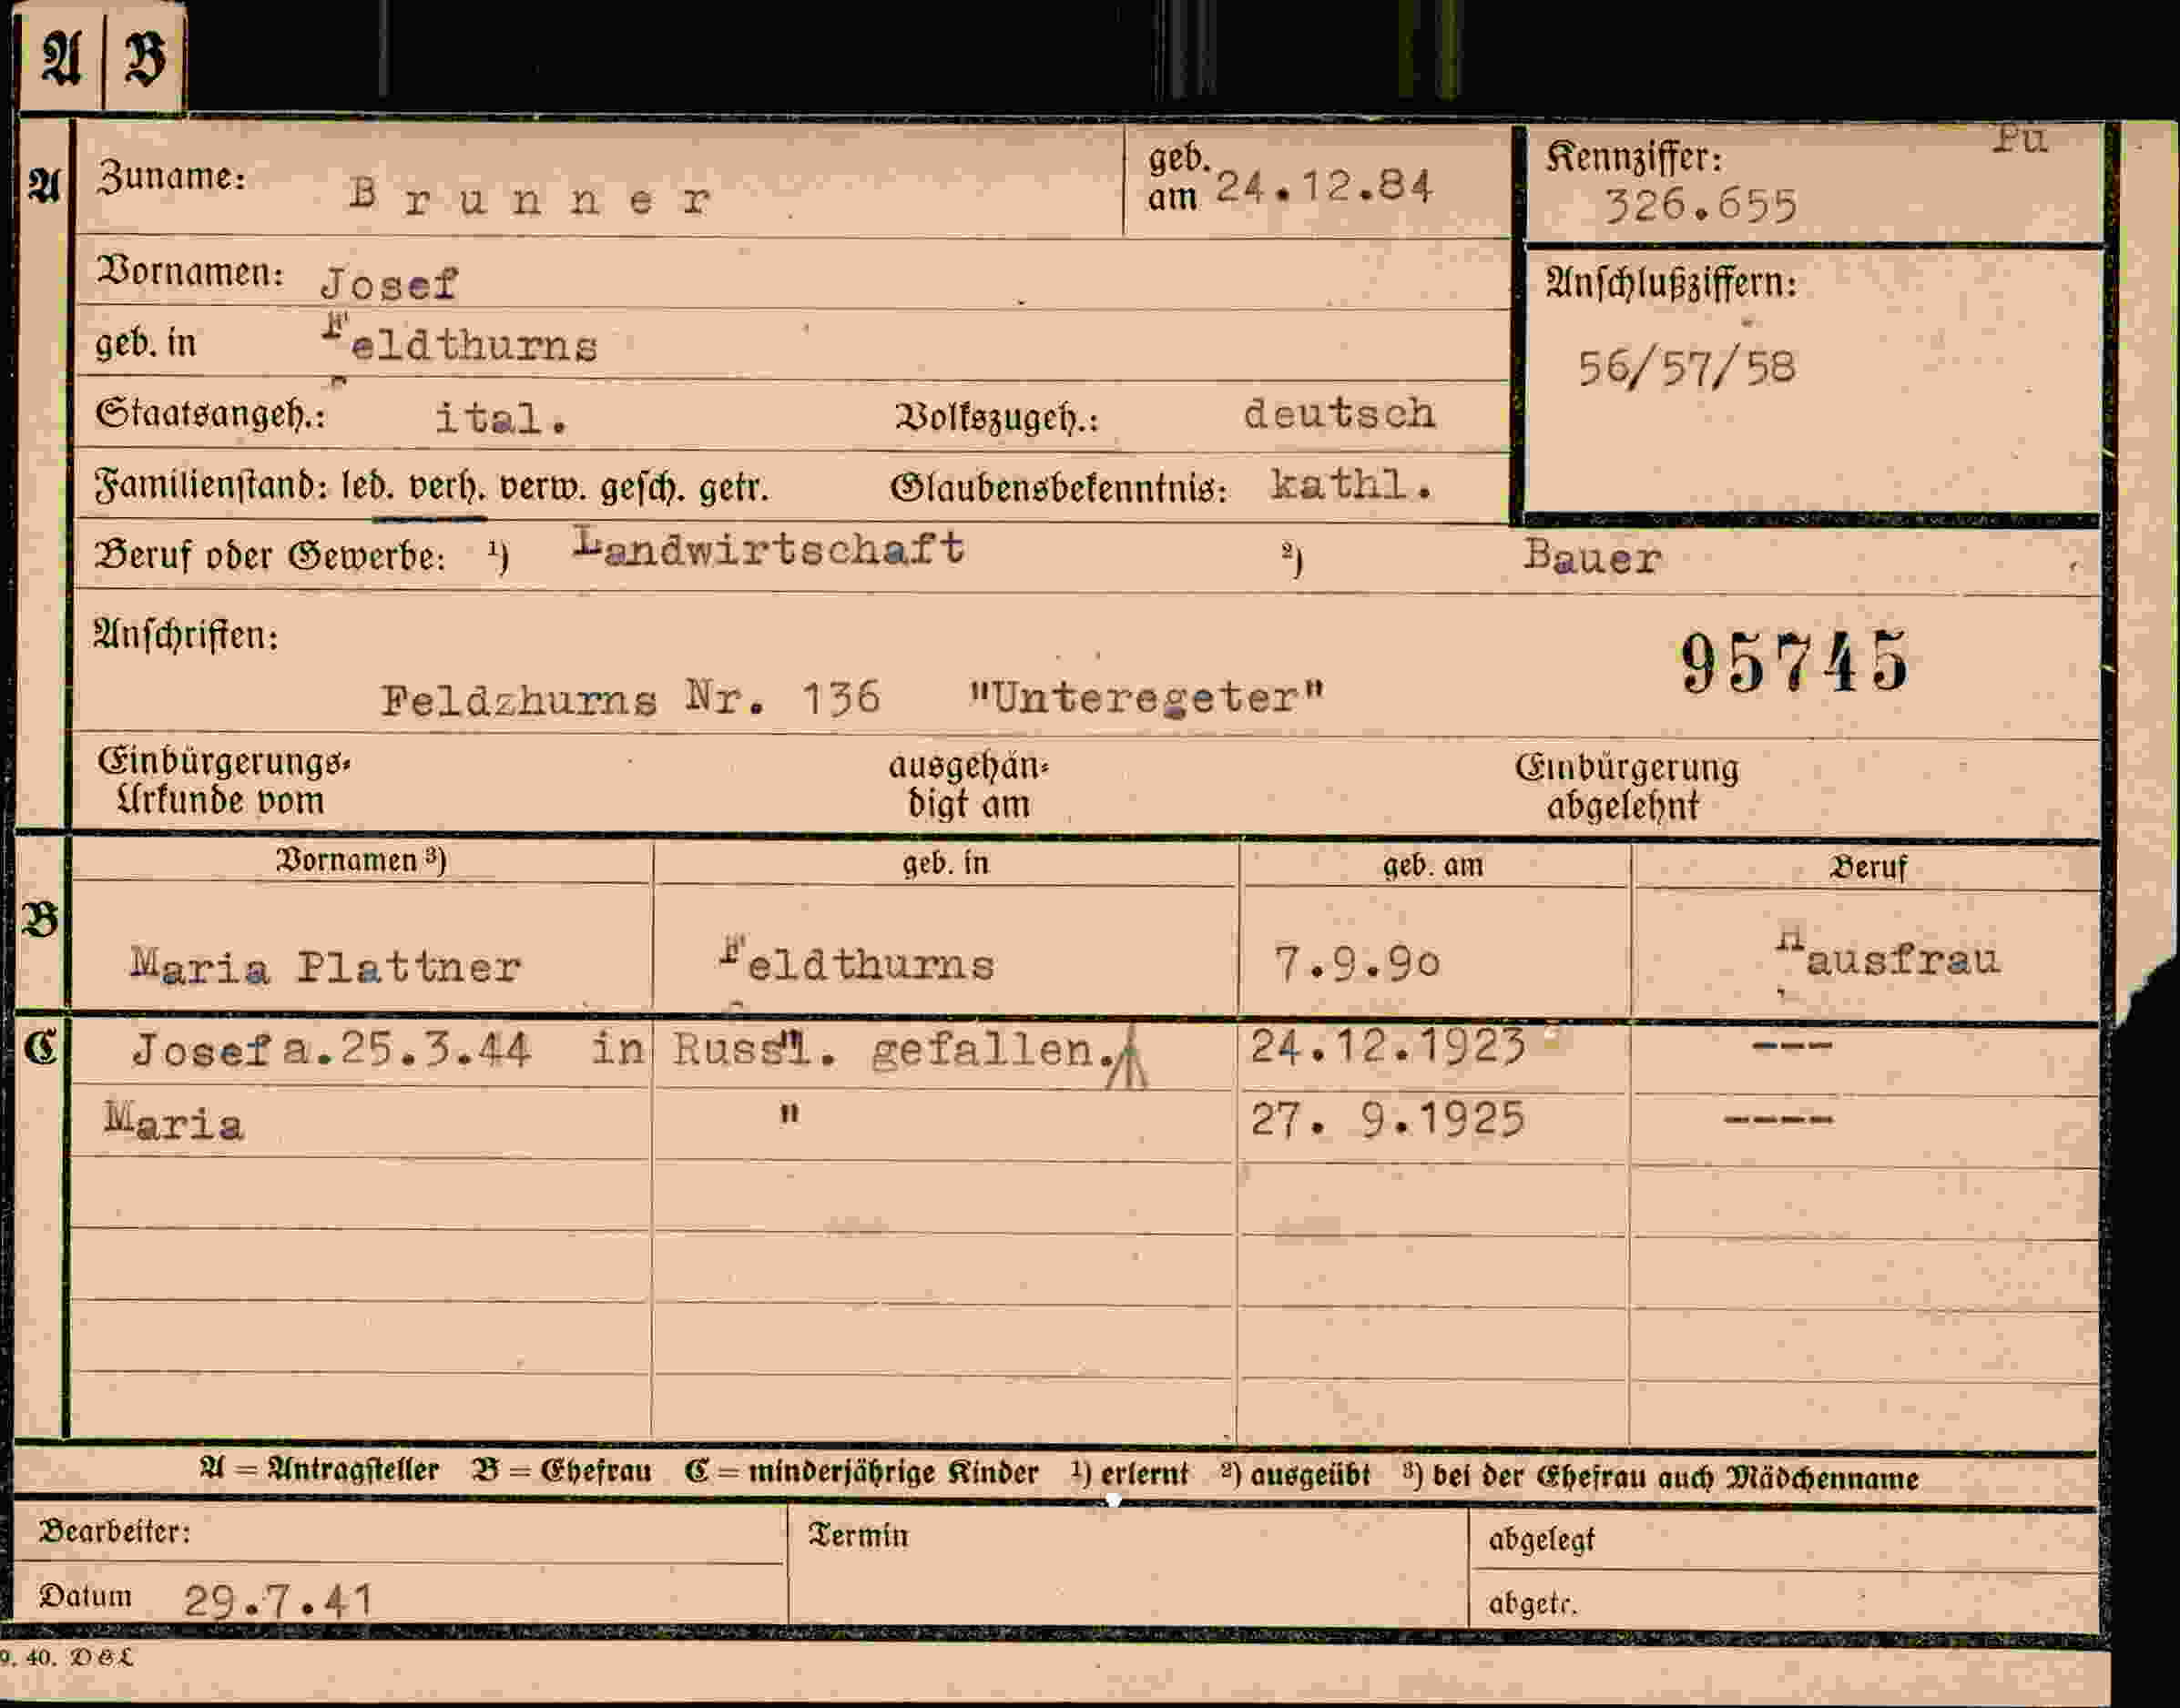 A B
A Zuname: Brunner geb. am 24.12.84 Kennziffer: Pu
326.655
Vornamen: Josef Anschlußziffern:
geb. in Feldthurns 56/57/58
Staatsangeh.: ital. Volkszugeh.: deutsch
Familienstand: led. verh. verw. gesch. getr. Glaubensbekenntnis: kathl.
Beruf oder Gewerbe: ¹) Landwirtschaft ²) Bauer
Anschriften: 95745
Feldzhurns Nr. 136 "Unteregeter"
Einbürgerungs- ausgehän- Einbürgerung
Urkunde vom digt am abgelehnt
Vornamen ³) geb. in geb. am Beruf
B
Maria Plattner Feldthurns 7.9.90 Hausfrau
C Josef a.25.3.44 in Russl. gefallen. 24.12.1923 ---
Maria " 27. 9.1925 ----
A = Antragsteller B = Ehefrau C = minderjährige Kinder ¹) erlernt ²) ausgeübt ³) bei der Ehefrau auch Mädchenname
Bearbeiter: Termin abgelegt
Datum 29.7.41 abgetr.
9. 40. DEL